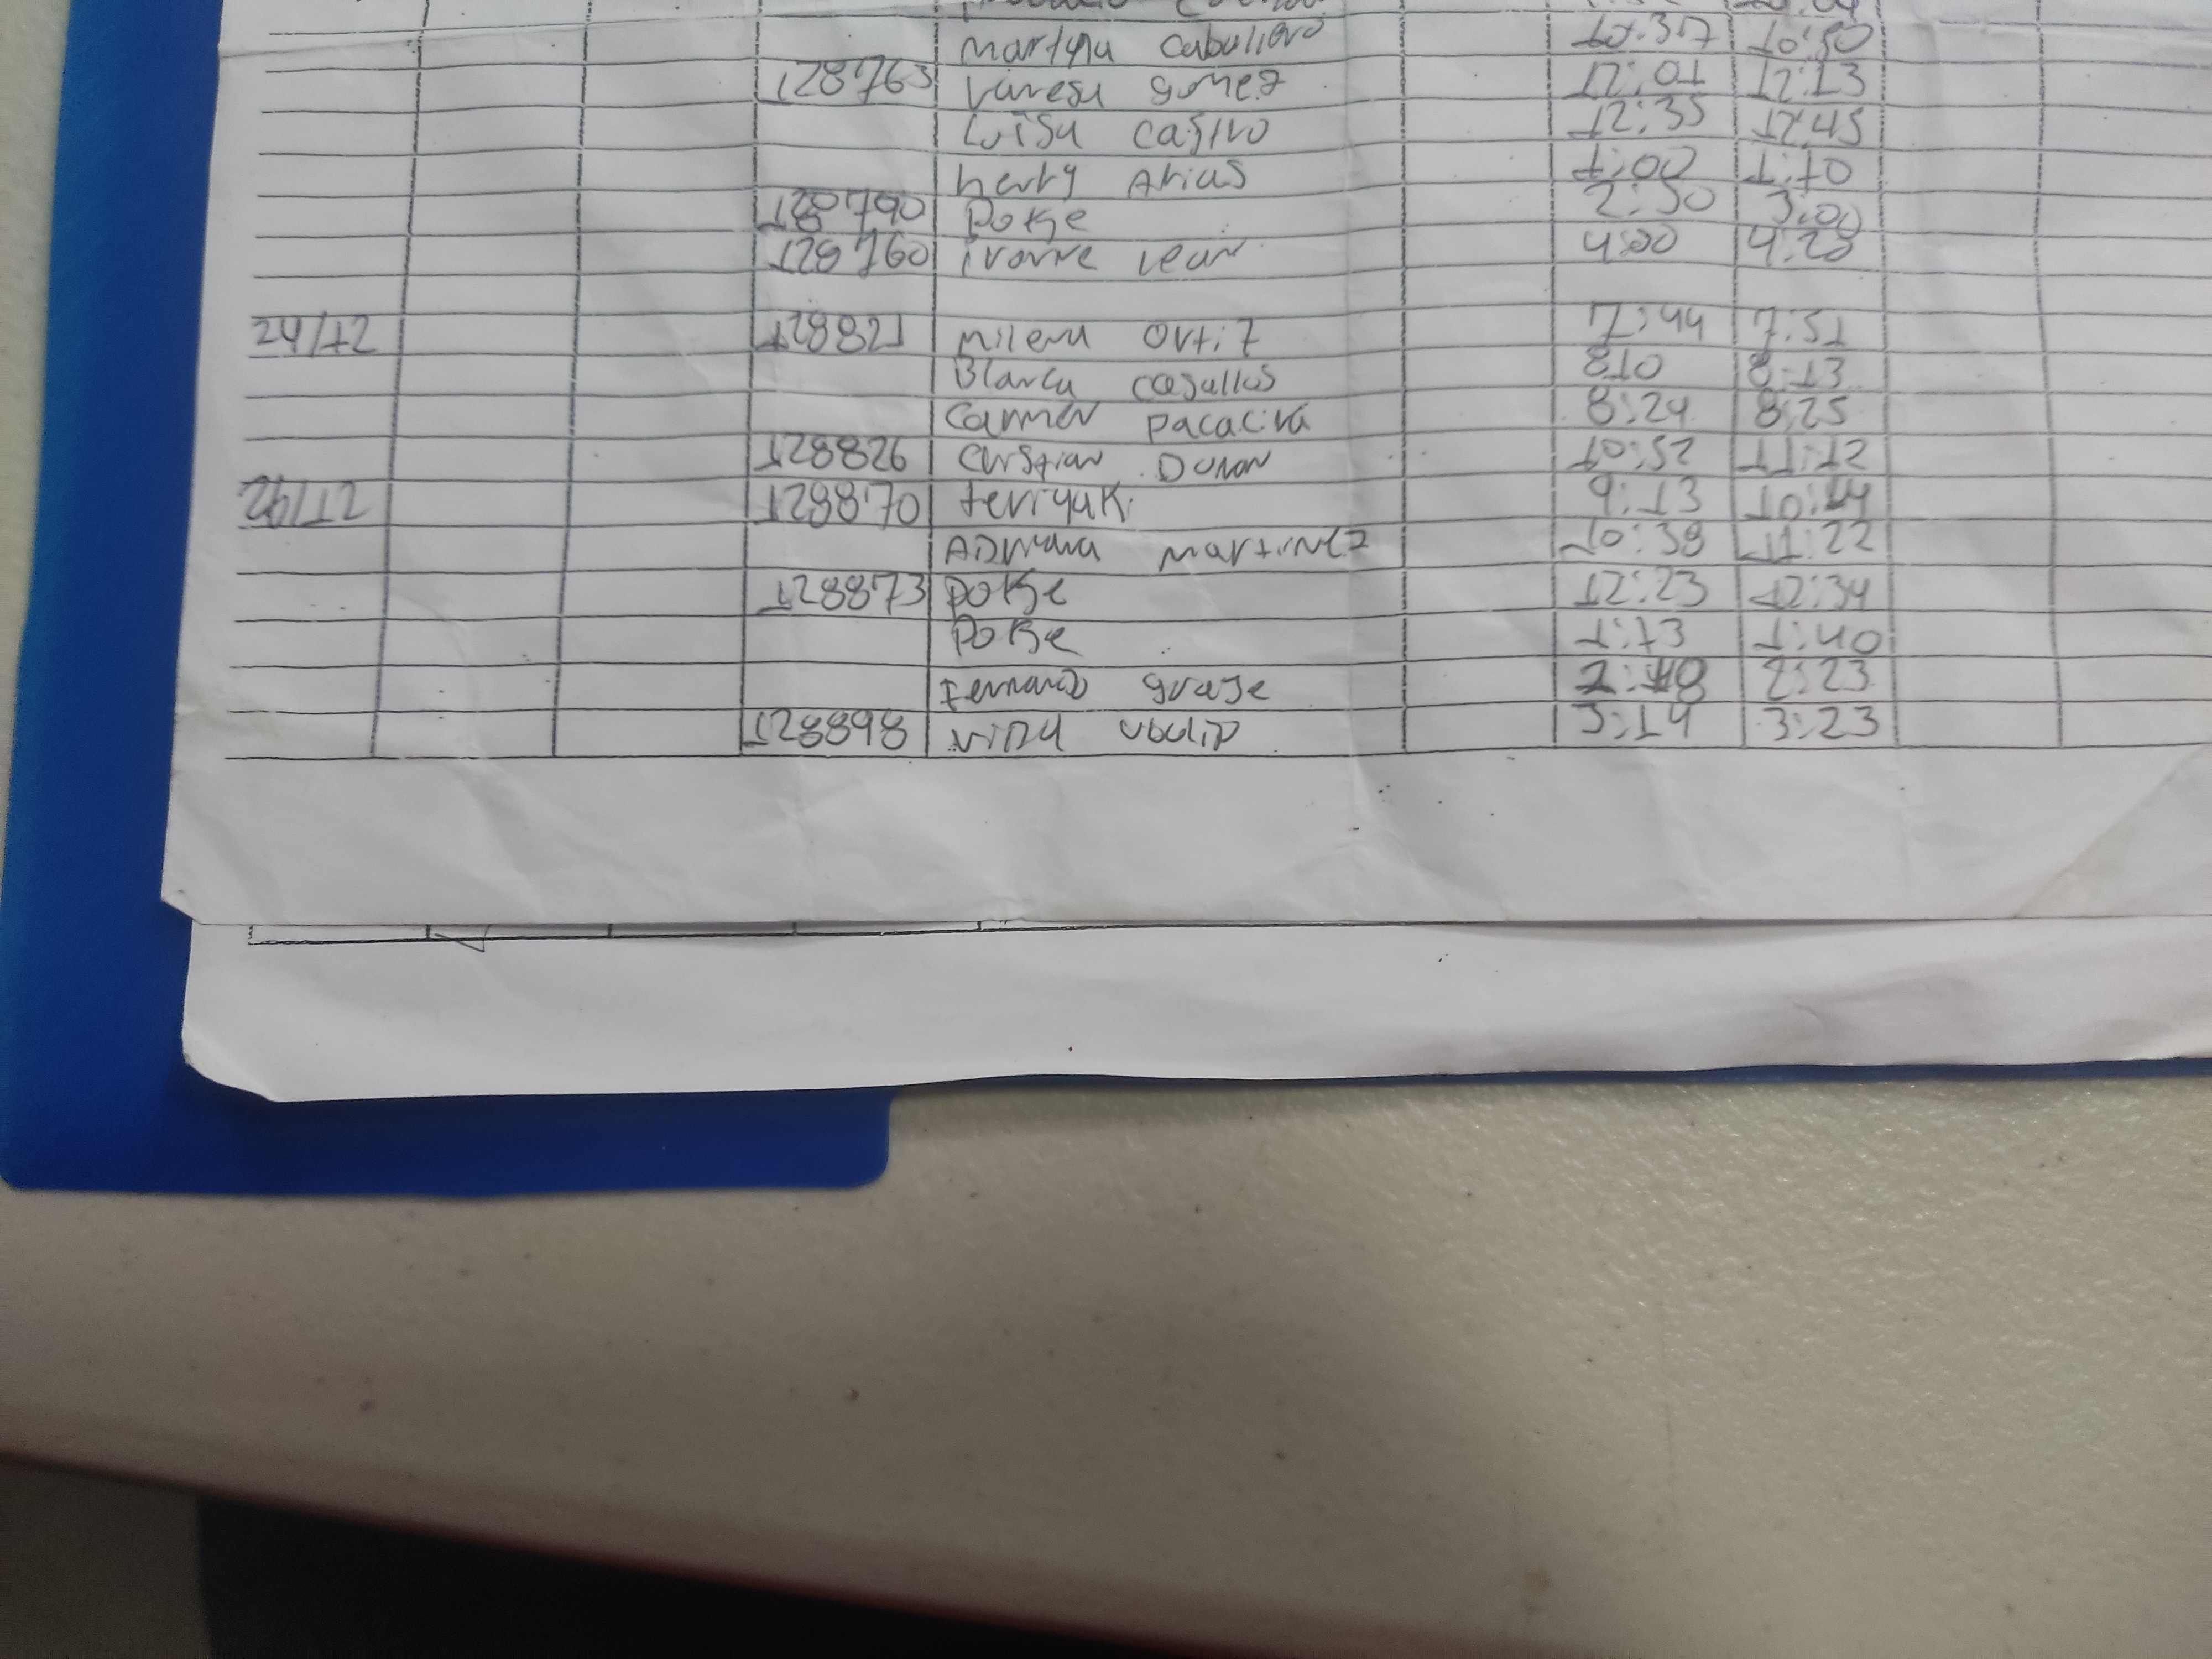 Martha Caballero 10:37 10:50
128763 Vanesa gomez 12:01 12:13
Luisa Castro 12:35 12:45
henry Arias 1:00 1:10
128790 Dokse 2:50 3:00
128760 ivonne Lean 4:00 4:20
24/12 128821 milena Orti7 7:44 7:51
Blanca casallas 810 8:13
carmen pacaciva 8:24 8:25
128826 Cristian Duran 10:52 11:12
26/12 128870 teriyaki 9:13
ADriana martinez 10:38 11:22
128873 Dokse 12:23 12:34
Dokse 1:13 1:40
Fernando 2:23
128898 3:14 3:23